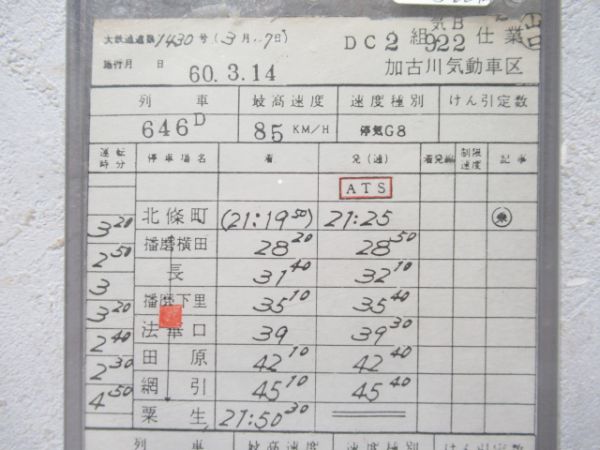 気B
大鉄達運 1430号 (3月 7日)
DC2組 922仕業
施行月 日 60.3.14 加古川気動車区
列車 最高速度 速度種別 けん引定数
646D 85KM/H 停気G8
運転時分 停車場名 着 発(通) 着発線 制限速度 記事
ATS
北條町 (21:19 50) 21:25 乗
3 20
播磨横田 28 20 28 50
2 50
長 31 40 32 10
3
播磨下里 35 10 35 40
3 20
法華口 39 39 30
2 40
田原 42 10 42 40
2 30
網引 45 10 45 40
4 50
粟生 21:50 30
列車 最高速度 速度種別 けん引定数